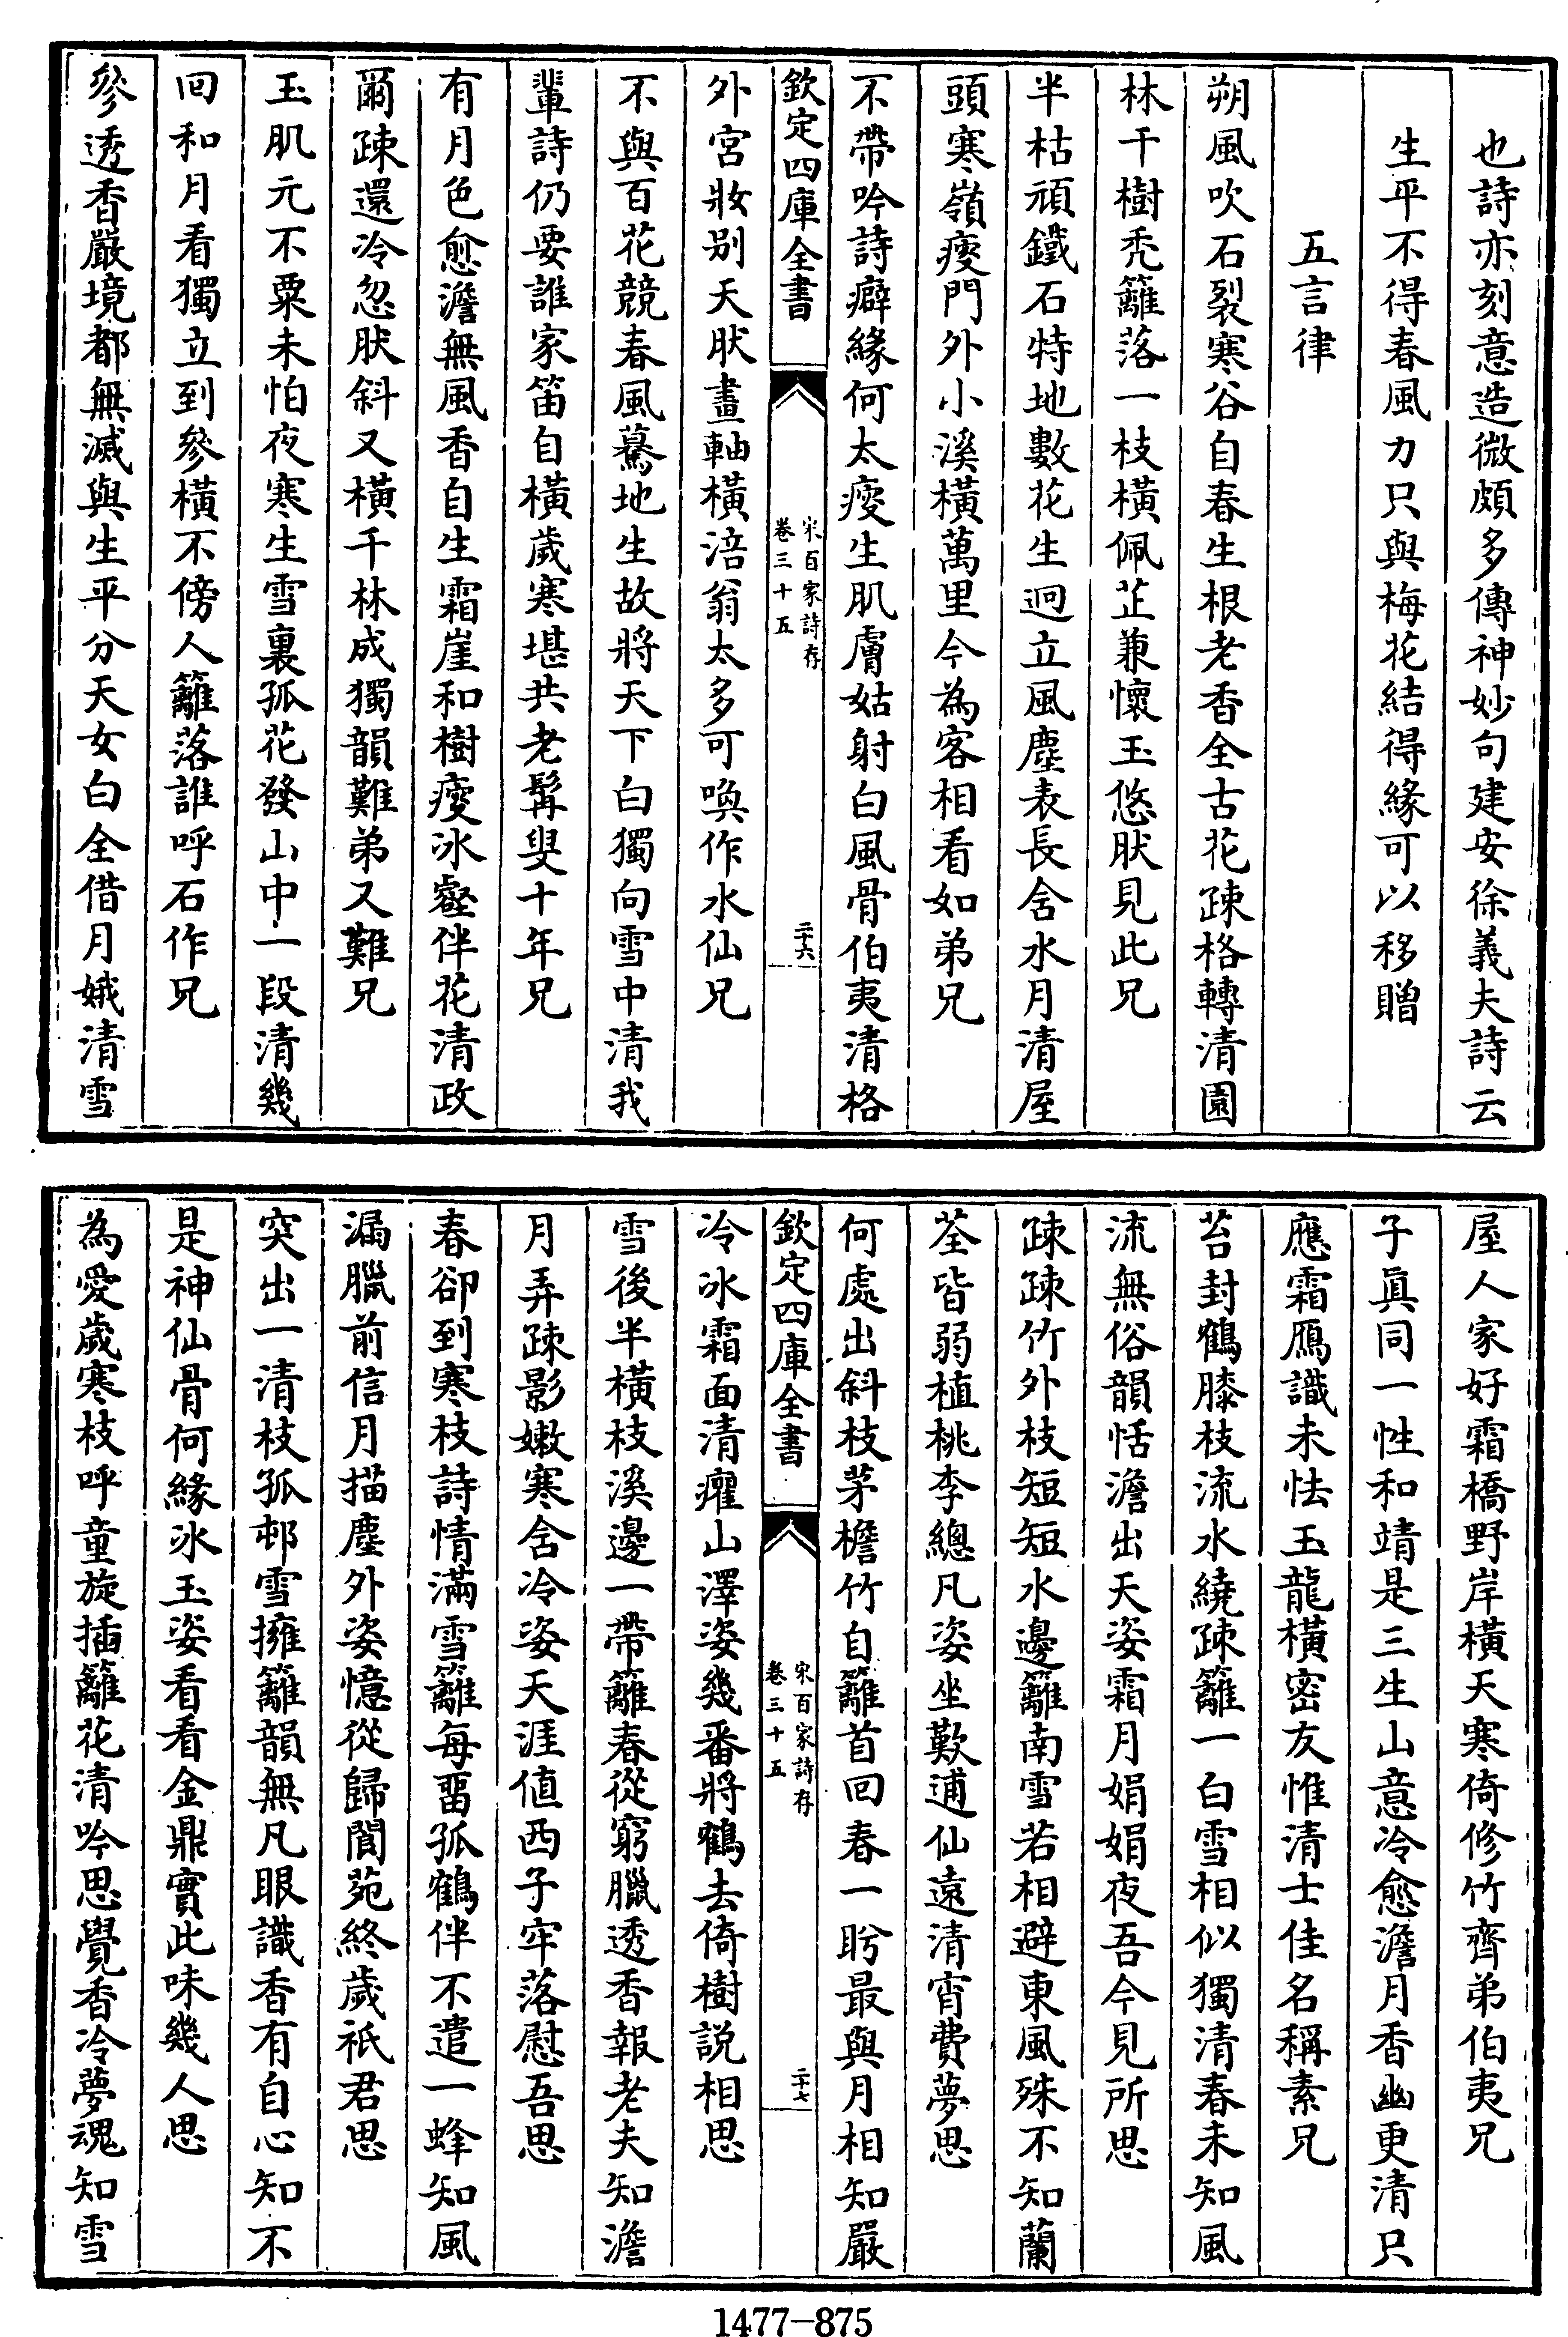 也詩亦刻意造微頗多傳神妙句建安徐義夫詩云
生平不得春風力只與梅花結得緣可以移贈
五言律
朔風吹石裂寒谷自春生根老香全古花疎格轉清園
林千樹禿籬落一枝橫佩芷兼懷玉悠肰見此兄
半枯頑鐵石特地數花生迥立風塵表長舍水月清屋
頭寒嶺瘦門外小溪橫萬里今為客相看如弟兄
不帶吟詩癖緣何太瘦生肌膚姑射白風骨伯夷清格
欽定四庫全書
宋百家詩存
卷三十五
二十六
外宮妝別天肰畫軸橫涪翁太多可喚作水仙兄
不與百花競春風驀地生故將天下白獨向雪中清我
輩詩仍要誰家笛自橫歲寒堪共老髯叟十年兄
有月色愈澹無風香自生霜崖和樹瘦冰壑伴花清政
爾疎還冷忽肰斜又橫千林成獨韻難弟又難兄
玉肌元不粟未怕夜寒生雪裏孤花發山中一段清幾
回和月看獨立到參橫不傍人籬落誰呼石作兄
參透香嚴境都無滅與生平分天女白全借月娥清雪
屋人家好霜橋野岸橫天寒倚修竹齊弟伯夷兄
子真同一性和靖是三生山意冷愈澹月香幽更清只
應霜鴈識未怯玉龍橫密友惟清士佳名稱素兄
苔封鶴膝枝流水繞疎籬一白雪相似獨清春未知風
流無俗韻恬澹出天姿霜月娟娟夜吾今見所思
疎疎竹外枝短短水邊籬南雪若相避東風殊不知蘭
荃皆弱植桃李總凡姿坐歎逋仙遠清宵費夢思
何處出斜枝茅檐竹自籬首回春一盻最與月相知嚴
欽定四庫全書
宋百家詩存
卷三十五
二十七
冷冰霜面清癯山澤姿幾番將鶴去倚樹説相思
雪後半橫枝溪邊一帶籬春從窮臘透香報老夫知澹
月弄疎影嫩寒舍冷姿天涯值西子牢落慰吾思
春卻到寒枝詩情滿雪籬每畱孤鶴伴不遣一蜂知風
漏臘前信月描塵外姿憶從歸閬苑終歲祇君思
突出一清枝孤邨雪擁籬韻無凡眼識香有自心知不
是神仙骨何緣冰玉姿看看金鼎實此味幾人思
為愛歲寒枝呼童旋插籬花清吟思覺香冷夢魂知雪
1477—875